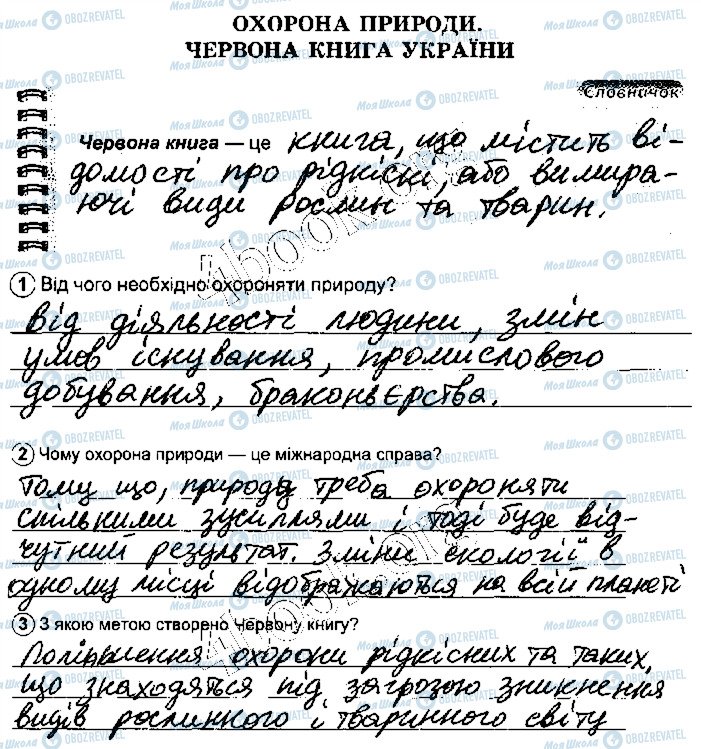 ОХОРОНА ПРИРОДИ.
ЧЕРВОНА КНИГА УКРАЇНИ
Словничок
Червона книга — це книга, що містить ві-
домості про рідкісні, або вимира-
ючі види рослин та тварин.
1 Від чого необхідно охороняти природу?
Від діяльності людини, змін
умов існування, промислового
добування, браконьєрства.
2 Чому охорона природи — це міжнародна справа?
Тому що, природу треба охороняти
спільними зусиллями і тоді буде від-
чутний результат. Зміни екології в
одному місці відображаються на всій планеті
3 З якою метою створено Червону книгу?
Поліпшення охорони рідкісних та таких,
що знаходяться під загрозою зникнення
видів рослинного і тваринного світу